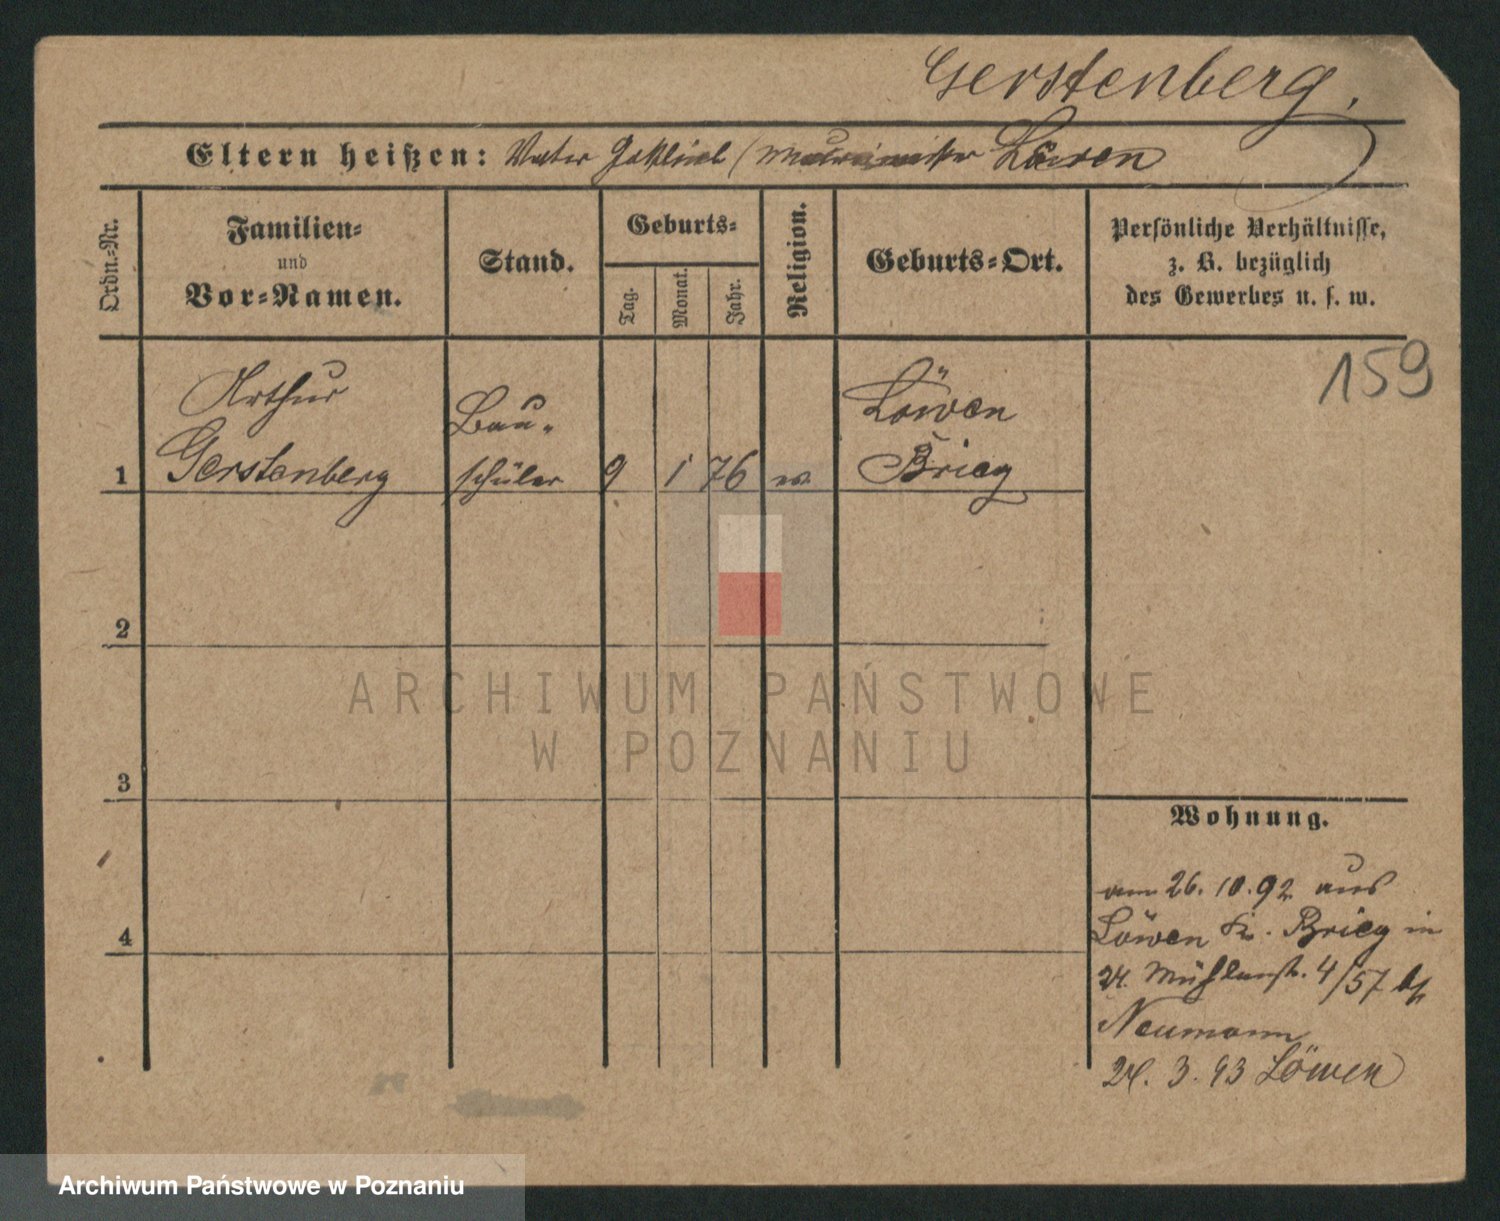 Gerstenberg.
Eltern heißen: Vater Gottlieb (Maurermeister Löwen
Ordn.-Nr.
Familien-
und
Vor-Namen.
Stand.
Geburts-
Tag.
Monat.
Jahr.
Religion.
Geburts-Ort.
Persönliche Verhältnisse,
z. B. bezüglich
des Gewerbes u. s. w.
159
1
Arthur
Gerstenberg
Bau-
schüler
9
1
76
ev.
Löwen
Brieg
2
3
4
Wohnung.
am 26.10.92 aus
Löwen Kr. Brieg in
Mühlenstr. 4/57 bei
Neumann
24. 3. 93 Löwen
ARCHIWUM PAŃSTWOWE
W POZNANIU
Archiwum Państwowe w Poznaniu